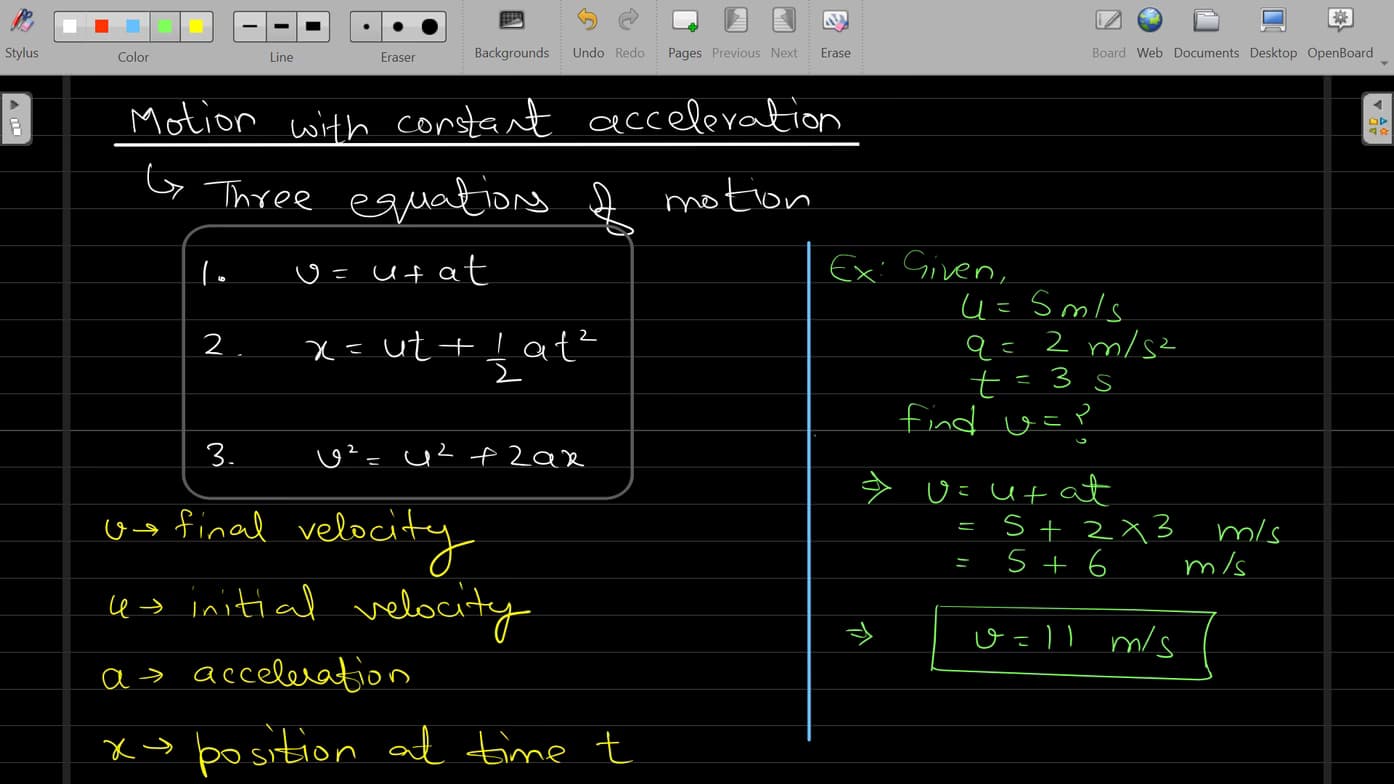 Stylus Color Line Eraser Backgrounds Undo Redo Pages Previous Next Erase Board Web Documents Desktop OpenBoard
Motion with constant acceleration
↳ Three equations of motion
1. v = u + at
2. x = ut + 1/2 at²
3. v² = u² + 2ax
v → final velocity
u → initial velocity
a → acceleration
x → position at time t
Ex: Given,
u = 5 m/s
a = 2 m/s²
t = 3 s
find v = ?
⇒ v = u + at
= 5 + 2 × 3 m/s
= 5 + 6 m/s
⇒ v = 11 m/s